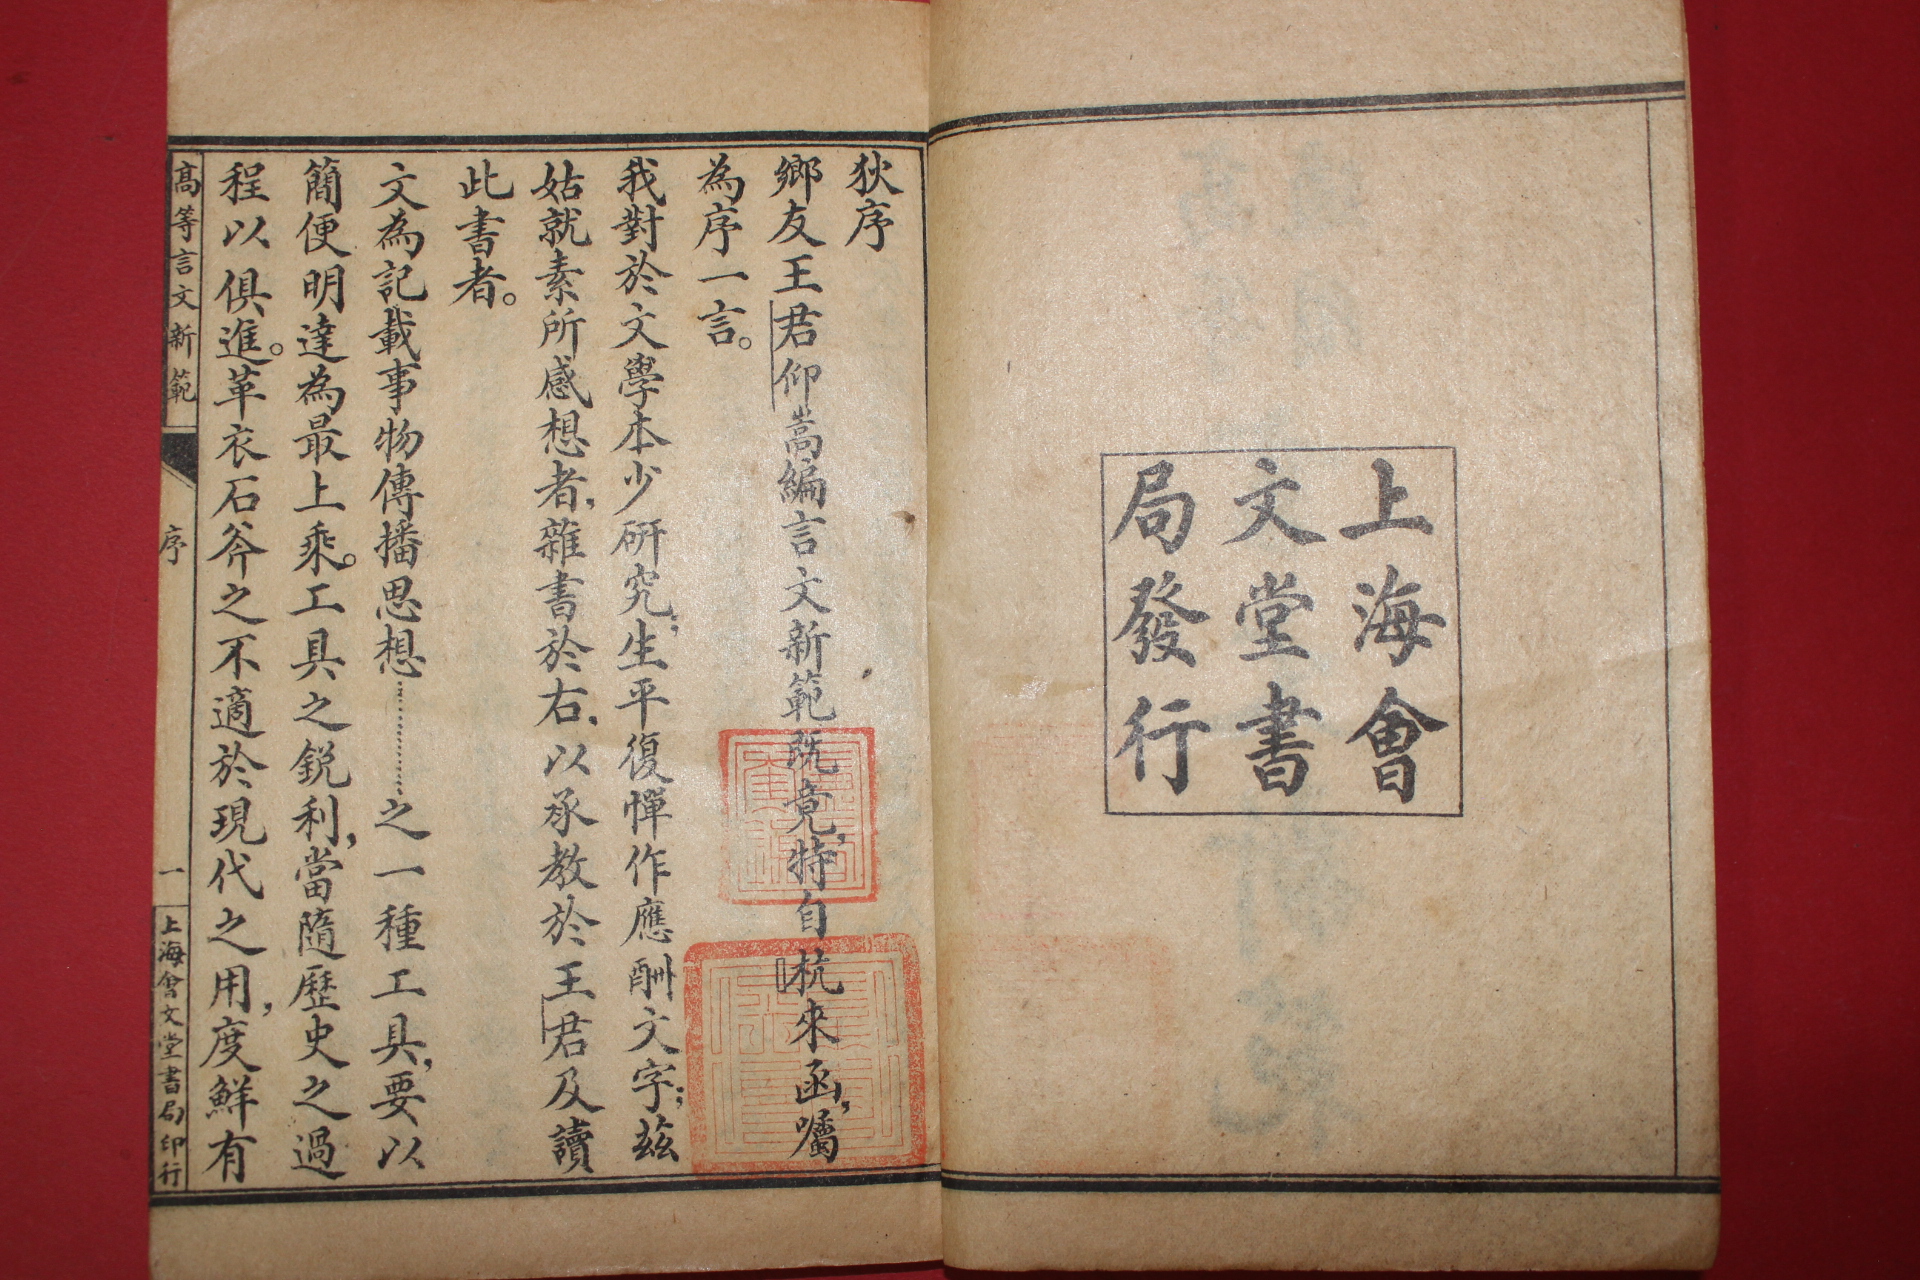 上海會
文堂書
局發行
狄序
鄉友王君仰嵩編言文新範既竟,特自杭來函,囑
為序一言。
我對於文學本少研究;生平復憚作應酬文字;茲
姑就素所感想者,雜書於右,以承教於王君及讀
此書者。
文為記載事物傳播思想………之一種工具,要以
簡便明達為最上乘。工具之銳利,當隨歷史之過
程以俱進。革衣石斧之不適於現代之用,度鮮有
高等言文新範 序 一 上海會文堂書局印行